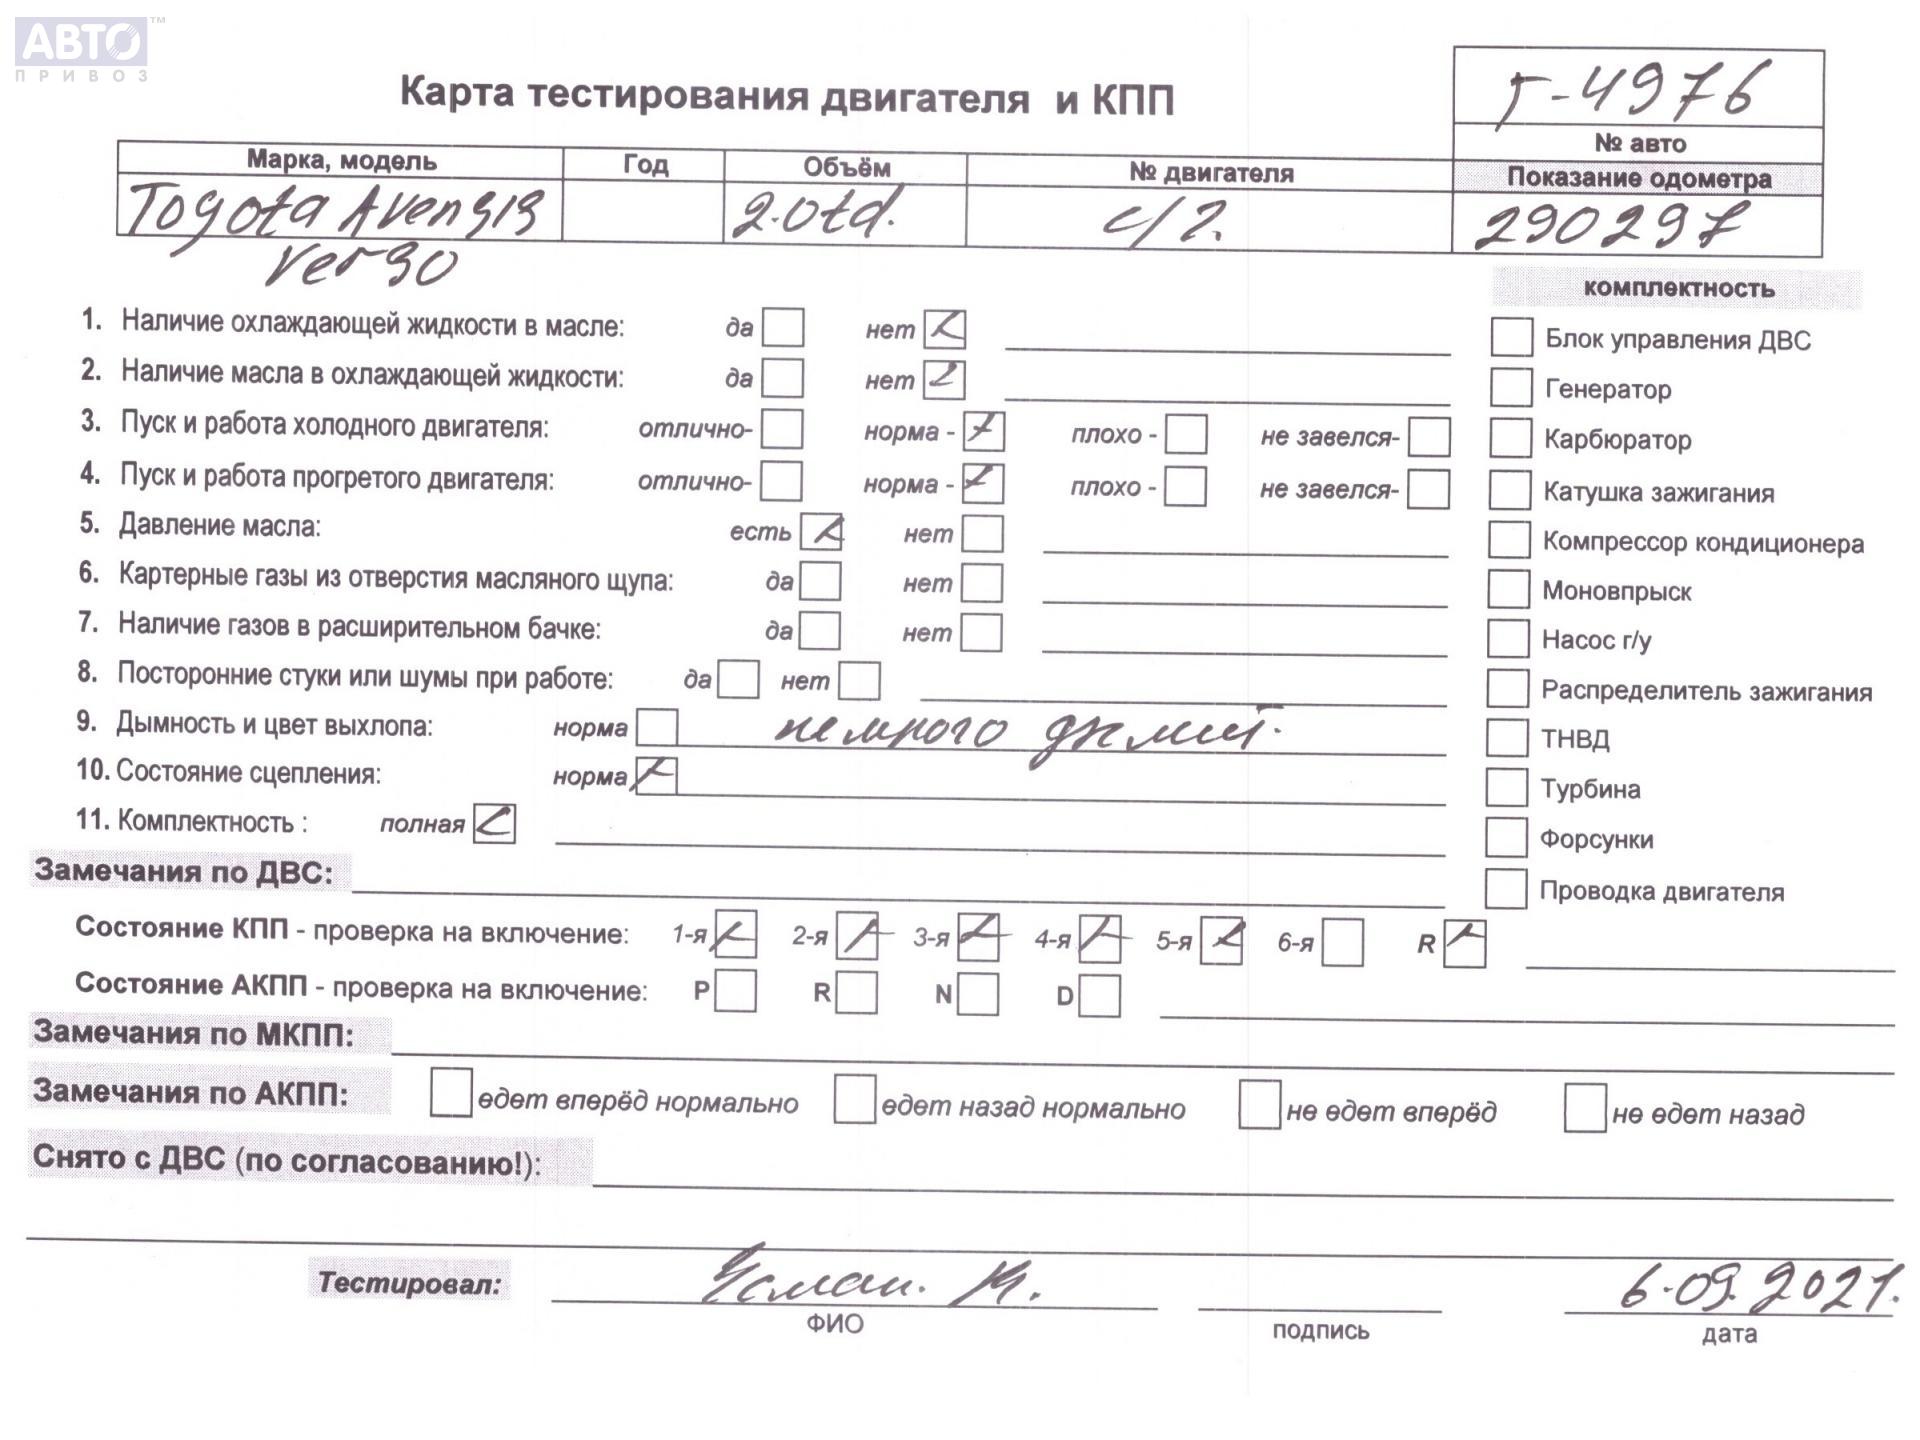 АВТО™
ПРИВОЗ
Карта тестирования двигателя и КПП
т-4976
№ авто
Марка, модель Год Объём № двигателя Показание одометра
Toyota Avensis 2.0td. с/г. 290297
Verso
комплектность
1. Наличие охлаждающей жидкости в масле: да нет Блок управления ДВС
2. Наличие масла в охлаждающей жидкости: да нет Генератор
3. Пуск и работа холодного двигателя: отлично- норма - плохо - не завелся- Карбюратор
4. Пуск и работа прогретого двигателя: отлично- норма - плохо - не завелся- Катушка зажигания
5. Давление масла: есть нет Компрессор кондиционера
6. Картерные газы из отверстия масляного щупа: да нет Моновпрыск
7. Наличие газов в расширительном бачке: да нет Насос г/у
8. Посторонние стуки или шумы при работе: да нет Распределитель зажигания
9. Дымность и цвет выхлопа: норма немного дымит. ТНВД
10. Состояние сцепления: норма Турбина
11. Комплектность : полная Форсунки
Замечания по ДВС: Проводка двигателя
Состояние КПП - проверка на включение: 1-я 2-я 3-я 4-я 5-я 6-я R
Состояние АКПП - проверка на включение: P R N D
Замечания по МКПП:
Замечания по АКПП: едет вперёд нормально едет назад нормально не едет вперёд не едет назад
Снято с ДВС (по согласованию!):
Тестировал: 6.09.2021.
ФИО подпись дата